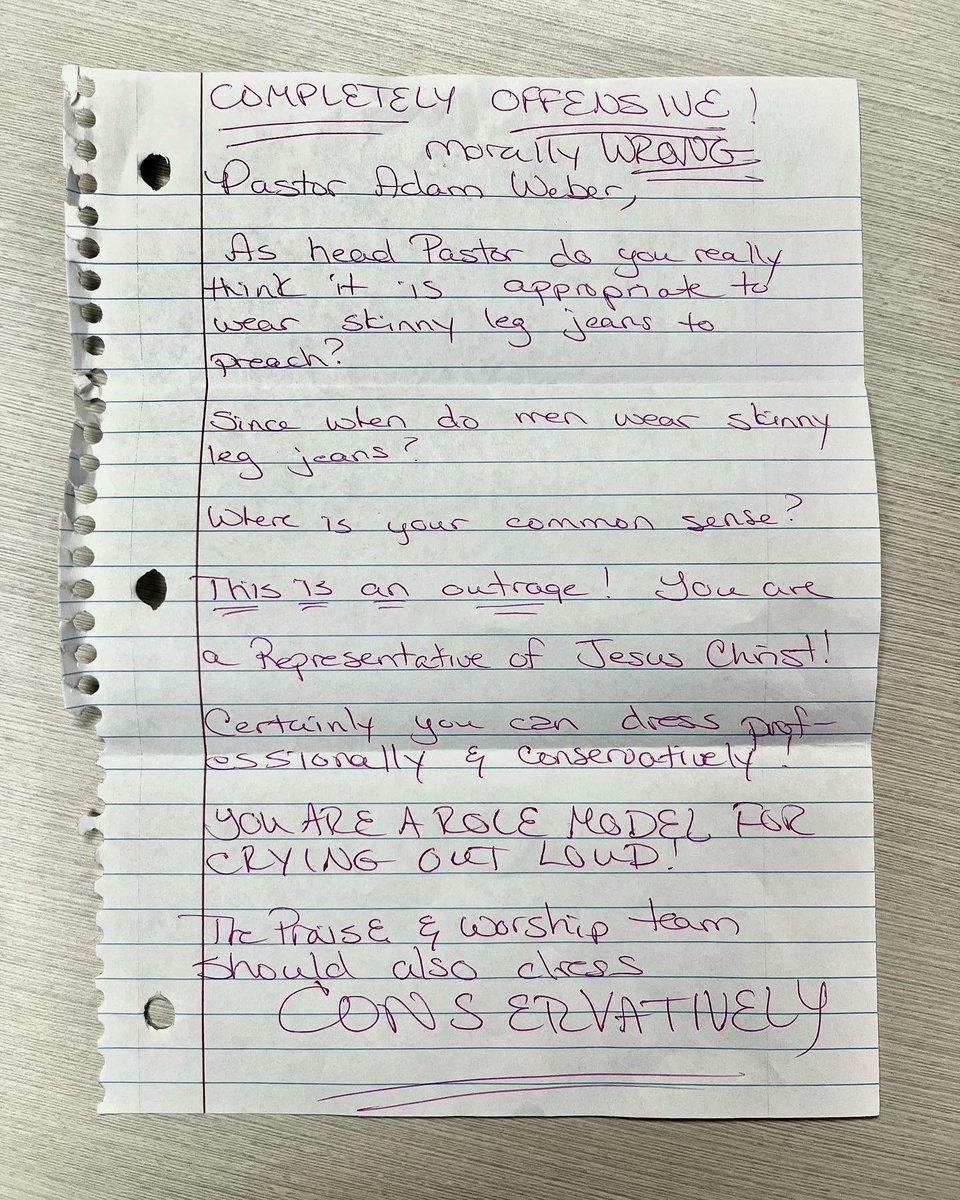 COMPLETELY OFFENSIVE!
morally WRONG
Pastor Adam Weber,
As head Pastor do you really
think it is appropriate to
wear skinny leg jeans to
preach?
Since when do men wear skinny
leg jeans?
Where is your common sense?
This is an outrage! You are
a Representative of Jesus Christ!
Certainly you can dress prof-
essionally & conservatively!
YOU ARE A ROLE MODEL FOR
CRYING OUT LOUD!
The Praise & Worship team
should also dress
CONSERVATIVELY